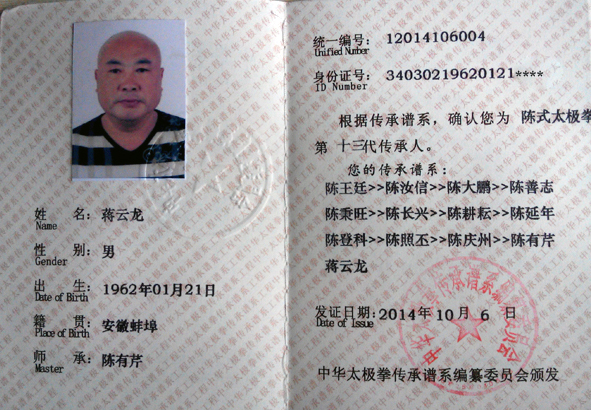 姓 名：蒋云龙
Name
性 别：男
Gender
出 生：1962年01月21日
Date of Birth
籍 贯：安徽蚌埠
Place of Birth
师 承：陈有芹
Master
统一编号：12014106004
Unified Number
身份证号：34030219620121****
ID Number
根据传承谱系，确认您为 陈式太极拳
第 十三代传承人。
您的传承谱系：
陈王廷>>陈汝信>>陈大鹏>>陈善志
陈秉旺>>陈长兴>>陈耕耘>>陈延年
陈登科>>陈照丕>>陈庆州>>陈有芹
蒋云龙
发证日期：2014年 10月 6 日
Date of Issue
中华太极拳传承谱系编纂委员会颁发